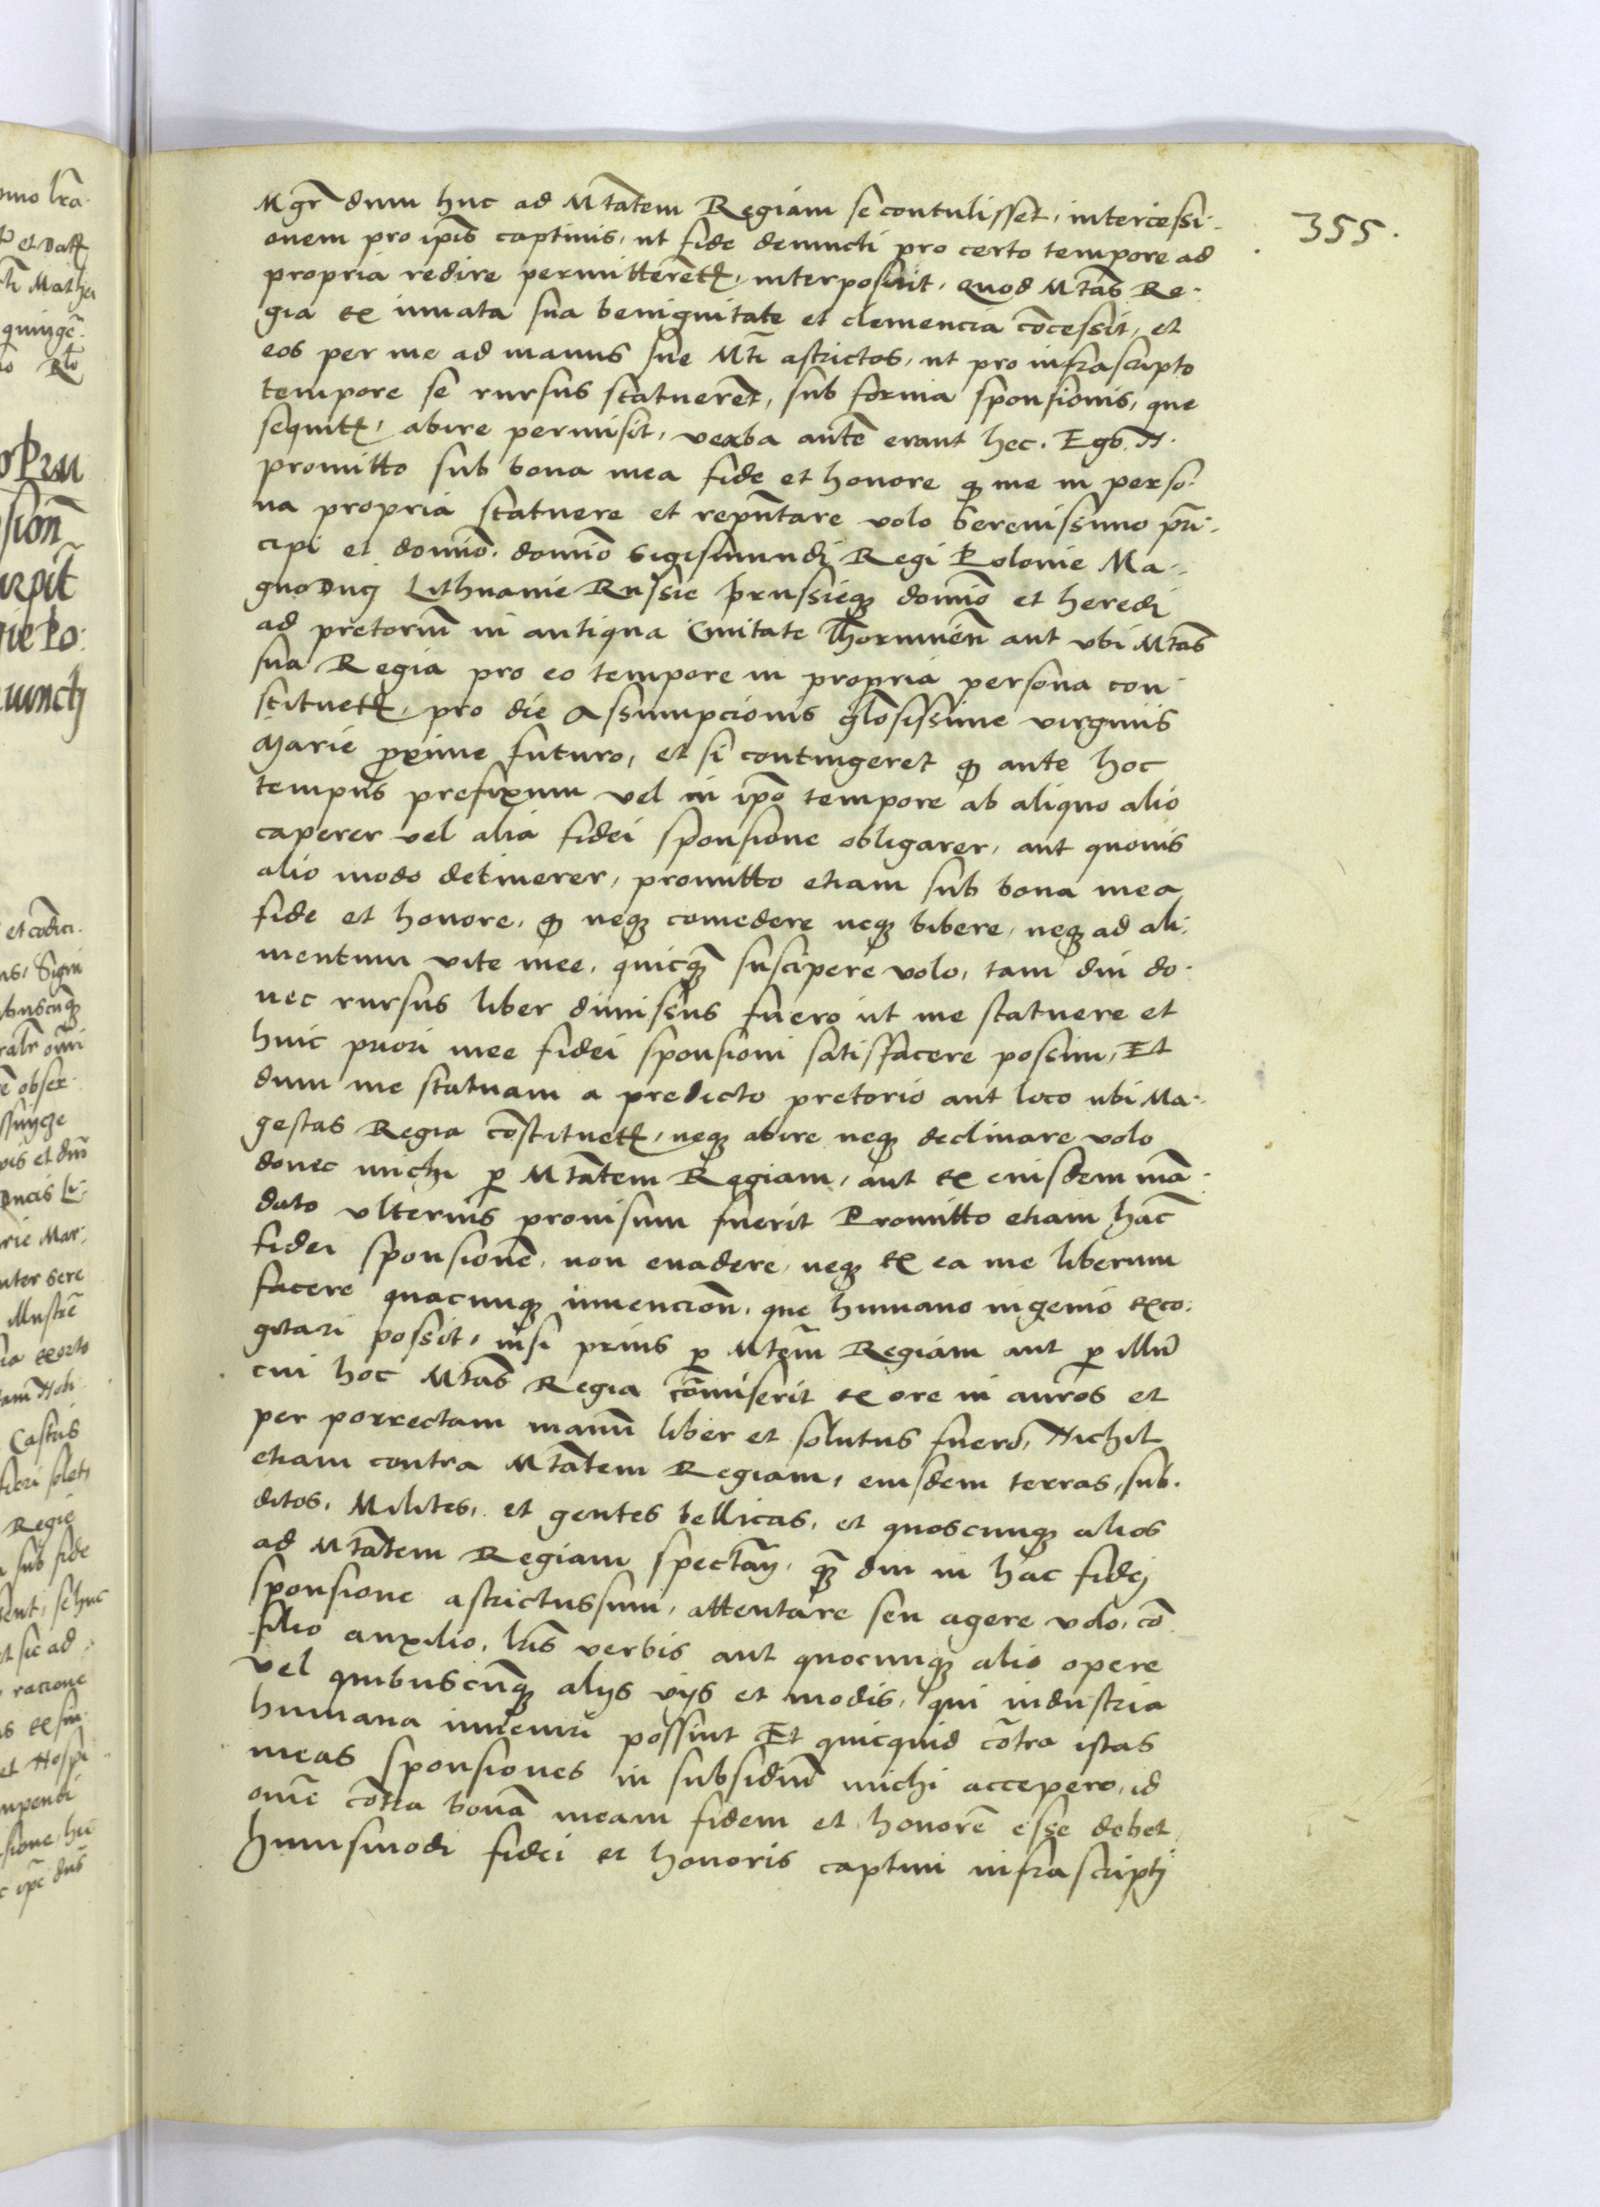 355.
Mgr̃ dum huc ad Mtãtem Regiam se contulisset, intercessi-
onem pro ip̃is captiuis, ut fide deuincti pro certo tempore ad
propria redire permitterẽtꝛ, interposuit, quod Mtãs Re-
gia ex innata sua benignitate et clemencia cõcessit, et
eos per me ad manus sue Mtĩ astrictos, ut pro infrascripto
tempore se rursus statuerẽt, sub forma sponsionis, que
sequitꝛ, abire permisit, verba autẽ erant hec. Ego .N.
promitto sub bona mea fide et honore ꝙ me in perso-
na propria statuere et repñtare volo Serenissimo prĩ-
cipi et domiõ. domiõ Sigismundi Regi Polonie Ma-
gno Ducj Lithuanie Russie Prussieqꝫ domiõ et heredi
ad pretoriũ in antiqua Ciuitate Thorunieñ aut vbi Mtãs
sua Regia pro eo tempore in propria persona con-
stituetꝛ, pro die Assumpcionis glõsissime virginis
Marie p̃xime futuro, et si contingeret ꝙ ante hoc
tempus prefixum vel in ip̃o tempore ab aliquo alio
caperer vel alia fidei sponsione obligarer, aut quouis
alio modo detinerer, promitto etiam sub bona mea
fide et honore, ꝙ neqꝫ comedere neqꝫ bibere, neqꝫ ad ali-
mentum vite mee, quicqꝫ̃ suscipere volo, tam diu do-
nec rursus liber dimissus fuero ut me statuere et
huic priori mee fidei sponsioni satisfacere possim, Et
dum me statuam a predicto pretorio aut loco ubi Ma-
gestas Regia cõstituetꝛ, neqꝫ abire neqꝫ declinare volo
donec michi ꝑ Mtãtem Regiam, aut ex eiusdem mã-
dato vlterius prouisum fuerit Promitto etiam hãc
fidei sponsionẽ, non euadere, neqꝫ ex ea me liberum
facere quacunqꝫ inuencioñ, que humano ingenio exco-
gitari possit, nisi prius ꝑ Mtem̃ Regiam aut ꝑ illũ
cui hoc Mtãs Regia cõmiserit ex ore in aures et
per porrectam manũ liber et solutus fuero, Nichil
etiam contra Mtãtem Regiam, eiusdem terras, sub-
ditos, Milites, et gentes bellicas, et quoscunqꝫ alios
ad Mtãtem Regiam spectañ, qꝫ̃ diu in hac fidej
sponsione astrictus sum, attentare seu agere volo, cõ-
silio auxilio, lr̃is verbis aut quocunqꝫ alio opere
vel quibuscũqꝫ alijs vijs et modis, qui industria
humana inueniri possint Et quicquid cõtra istas
meas sponsiones in subsidiũ michi accepero, id
om̃e cõtra bonã meam fidem et honorẽ esse debet
Huiusmodi fidei et honoris captiui infrascriptj